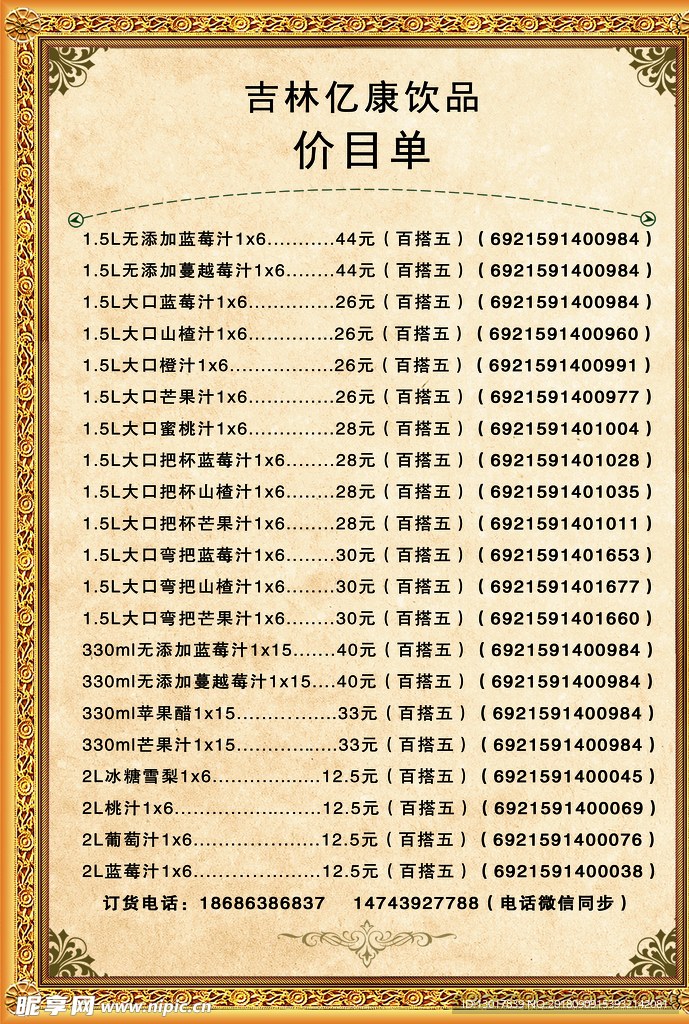 吉林亿康饮品
价目单
1.5L无添加蓝莓汁1x6...........44元（百搭五）（6921591400984）
1.5L无添加蔓越莓汁1x6........44元（百搭五）（6921591400984）
1.5L大口蓝莓汁1x6..............26元（百搭五）（6921591400984）
1.5L大口山楂汁1x6..............26元（百搭五）（6921591400960）
1.5L大口橙汁1x6.................26元（百搭五）（6921591400991）
1.5L大口芒果汁1x6..............26元（百搭五）（6921591400977）
1.5L大口蜜桃汁1x6..............28元（百搭五）（6921591401004）
1.5L大口把杯蓝莓汁1x6........28元（百搭五）（6921591401028）
1.5L大口把杯山楂汁1x6........28元（百搭五）（6921591401035）
1.5L大口把杯芒果汁1x6........28元（百搭五）（6921591401011）
1.5L大口弯把蓝莓汁1x6........30元（百搭五）（6921591401653）
1.5L大口弯把山楂汁1x6........30元（百搭五）（6921591401677）
1.5L大口弯把芒果汁1x6........30元（百搭五）（6921591401660）
330ml无添加蓝莓汁1x15.......40元（百搭五）（6921591400984）
330ml无添加蔓越莓汁1x15....40元（百搭五）（6921591400984）
330ml苹果醋1x15................33元（百搭五）（6921591400984）
330ml芒果汁1x15................33元（百搭五）（6921591400984）
2L冰糖雪梨1x6.................12.5元（百搭五）（6921591400045）
2L桃汁1x6........................12.5元（百搭五）（6921591400069）
2L葡萄汁1x6.....................12.5元（百搭五）（6921591400076）
2L蓝莓汁1x6.....................12.5元（百搭五）（6921591400038）
订货电话：18686386837 14743927788（电话微信同步）
昵享网 www.nipic.cn